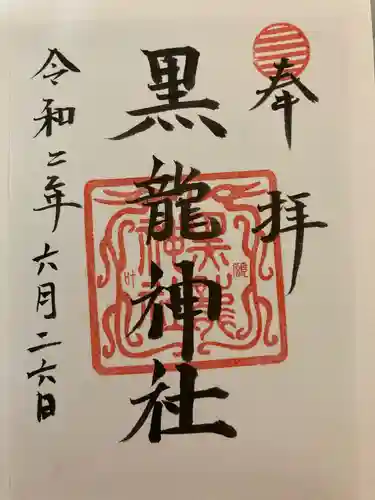 奉拝
黒龍神社
令和二年六月二六日